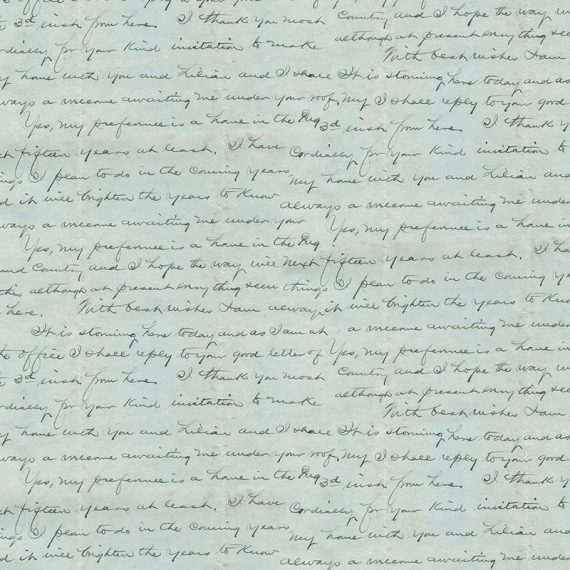 3d inst from here. I thank you most Country and I hope the way w
although at present everything see
ordially for your kind invitation to make With best wishes I am
y home with you and Lilian and I shall It is storming here today and as
ways a welcome awaiting me under your roof, My I shall reply to your good
Yes, my preference is a home in the 3d inst from here. I thank y
t fifteen years at least. I have Cordially for your kind invitation to
ings I plan to do in the coming years My home with you and Lilian and
d it will brighten the years to know always a welcome awaiting me under
ways a welcome awaiting me under your Yes, my preference is a home in
Yes, my preference is a home in the next fifteen years at least. I ha
and Country and I hope the way will things I plan to do in the coming y
this although at present everything seem it will brighten the years to know
here. With best wishes I am always
It is storming here today and as I am at a welcome awaiting me under
office I shall reply to your good letter of Yes, my preference is a home in
3d inst from here. I thank you most Country and I hope the way w
although at present everything see
ordially for your kind invitation to make With best wishes I am
y home with you and Lilian and I shall It is storming here today and as
ways a welcome awaiting me under your roof, My I shall reply to your good
Yes, my preference is a home in the 3d inst from here. I thank y
t fifteen years at least. I have Cordially for your kind invitation to
ings I plan to do in the coming years My home with you and Lilian and
d it will brighten the years to know always a welcome awaiting me under